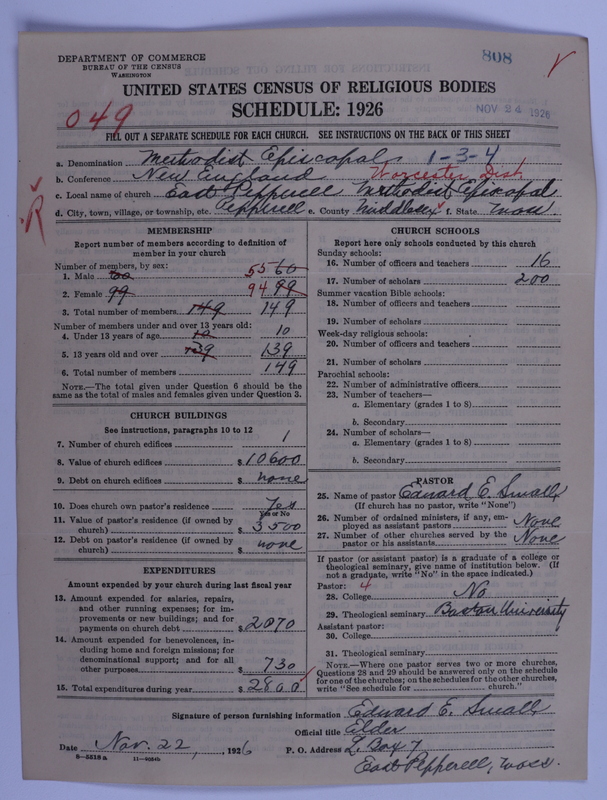 808
DEPARTMENT OF COMMERCE
BUREAU OF THE CENSUS
WASHINGTON
UNITED STATES CENSUS OF RELIGIOUS BODIES
SCHEDULE: 1926
NOV 24 1926
049
FILL OUT A SEPARATE SCHEDULE FOR EACH CHURCH. SEE INSTRUCTIONS ON THE BACK OF THIS SHEET
a. Denomination Methodist Episcopal 1-3-4
b. Conference New England Worcester Dist
c. Local name of church East Pepperell Methodist Episcopal
d. City, town, village, or township, etc. Pepperell e. County Middlesex f. State Mass.
R
MEMBERSHIP
Report number of members according to definition of member in your church
Number of members, by sex:
1. Male 55 60
2. Female 99 94 99
3. Total number of members 149 149
Number of members under and over 13 years old:
4. Under 13 years of age 10 10
5. 13 years old and over 139 139
6. Total number of members 149
NOTE.—The total given under Question 6 should be the same as the total of males and females given under Question 3.
CHURCH BUILDINGS
See instructions, paragraphs 10 to 12
7. Number of church edifices 1
8. Value of church edifices $ 10600
9. Debt on church edifices $ none
10. Does church own pastor's residence Yes
Yes or No
11. Value of pastor's residence (if owned by church) $ 3500
12. Debt on pastor's residence (if owned by church) $ none
EXPENDITURES
Amount expended by your church during last fiscal year
13. Amount expended for salaries, repairs, and other running expenses; for improvements or new buildings; and for payments on church debt $ 2070
14. Amount expended for benevolences, including home and foreign missions; for denominational support; and for all other purposes $ 730
15. Total expenditures during year $ 2800
CHURCH SCHOOLS
Report here only schools conducted by this church
Sunday schools:
16. Number of officers and teachers 16
17. Number of scholars 200
Summer vacation Bible schools:
18. Number of officers and teachers
19. Number of scholars
Week-day religious schools:
20. Number of officers and teachers
21. Number of scholars
Parochial schools:
22. Number of administrative officers
23. Number of teachers—
a. Elementary (grades 1 to 8)
b. Secondary
24. Number of scholars—
a. Elementary (grades 1 to 8)
b. Secondary
PASTOR
25. Name of pastor Edward E. Small
(If church has no pastor, write "None")
26. Number of ordained ministers, if any, employed as assistant pastors None
27. Number of other churches served by the pastor or his assistants None
If pastor (or assistant pastor) is a graduate of a college or theological seminary, give name of institution below. (If not a graduate, write "No" in the space indicated.)
Pastor: 4
28. College No
29. Theological seminary Boston University
Assistant pastor:
30. College
31. Theological seminary
NOTE.—Where one pastor serves two or more churches, Questions 28 and 29 should be answered only on the schedule for one of the churches; on the schedules for the other churches, write "See schedule for church."
Signature of person furnishing information Edward E. Small
Official title Elder
Date Nov. 22, 1926 P. O. Address L. Box 7
East Pepperell, Mass.
8—5518 a